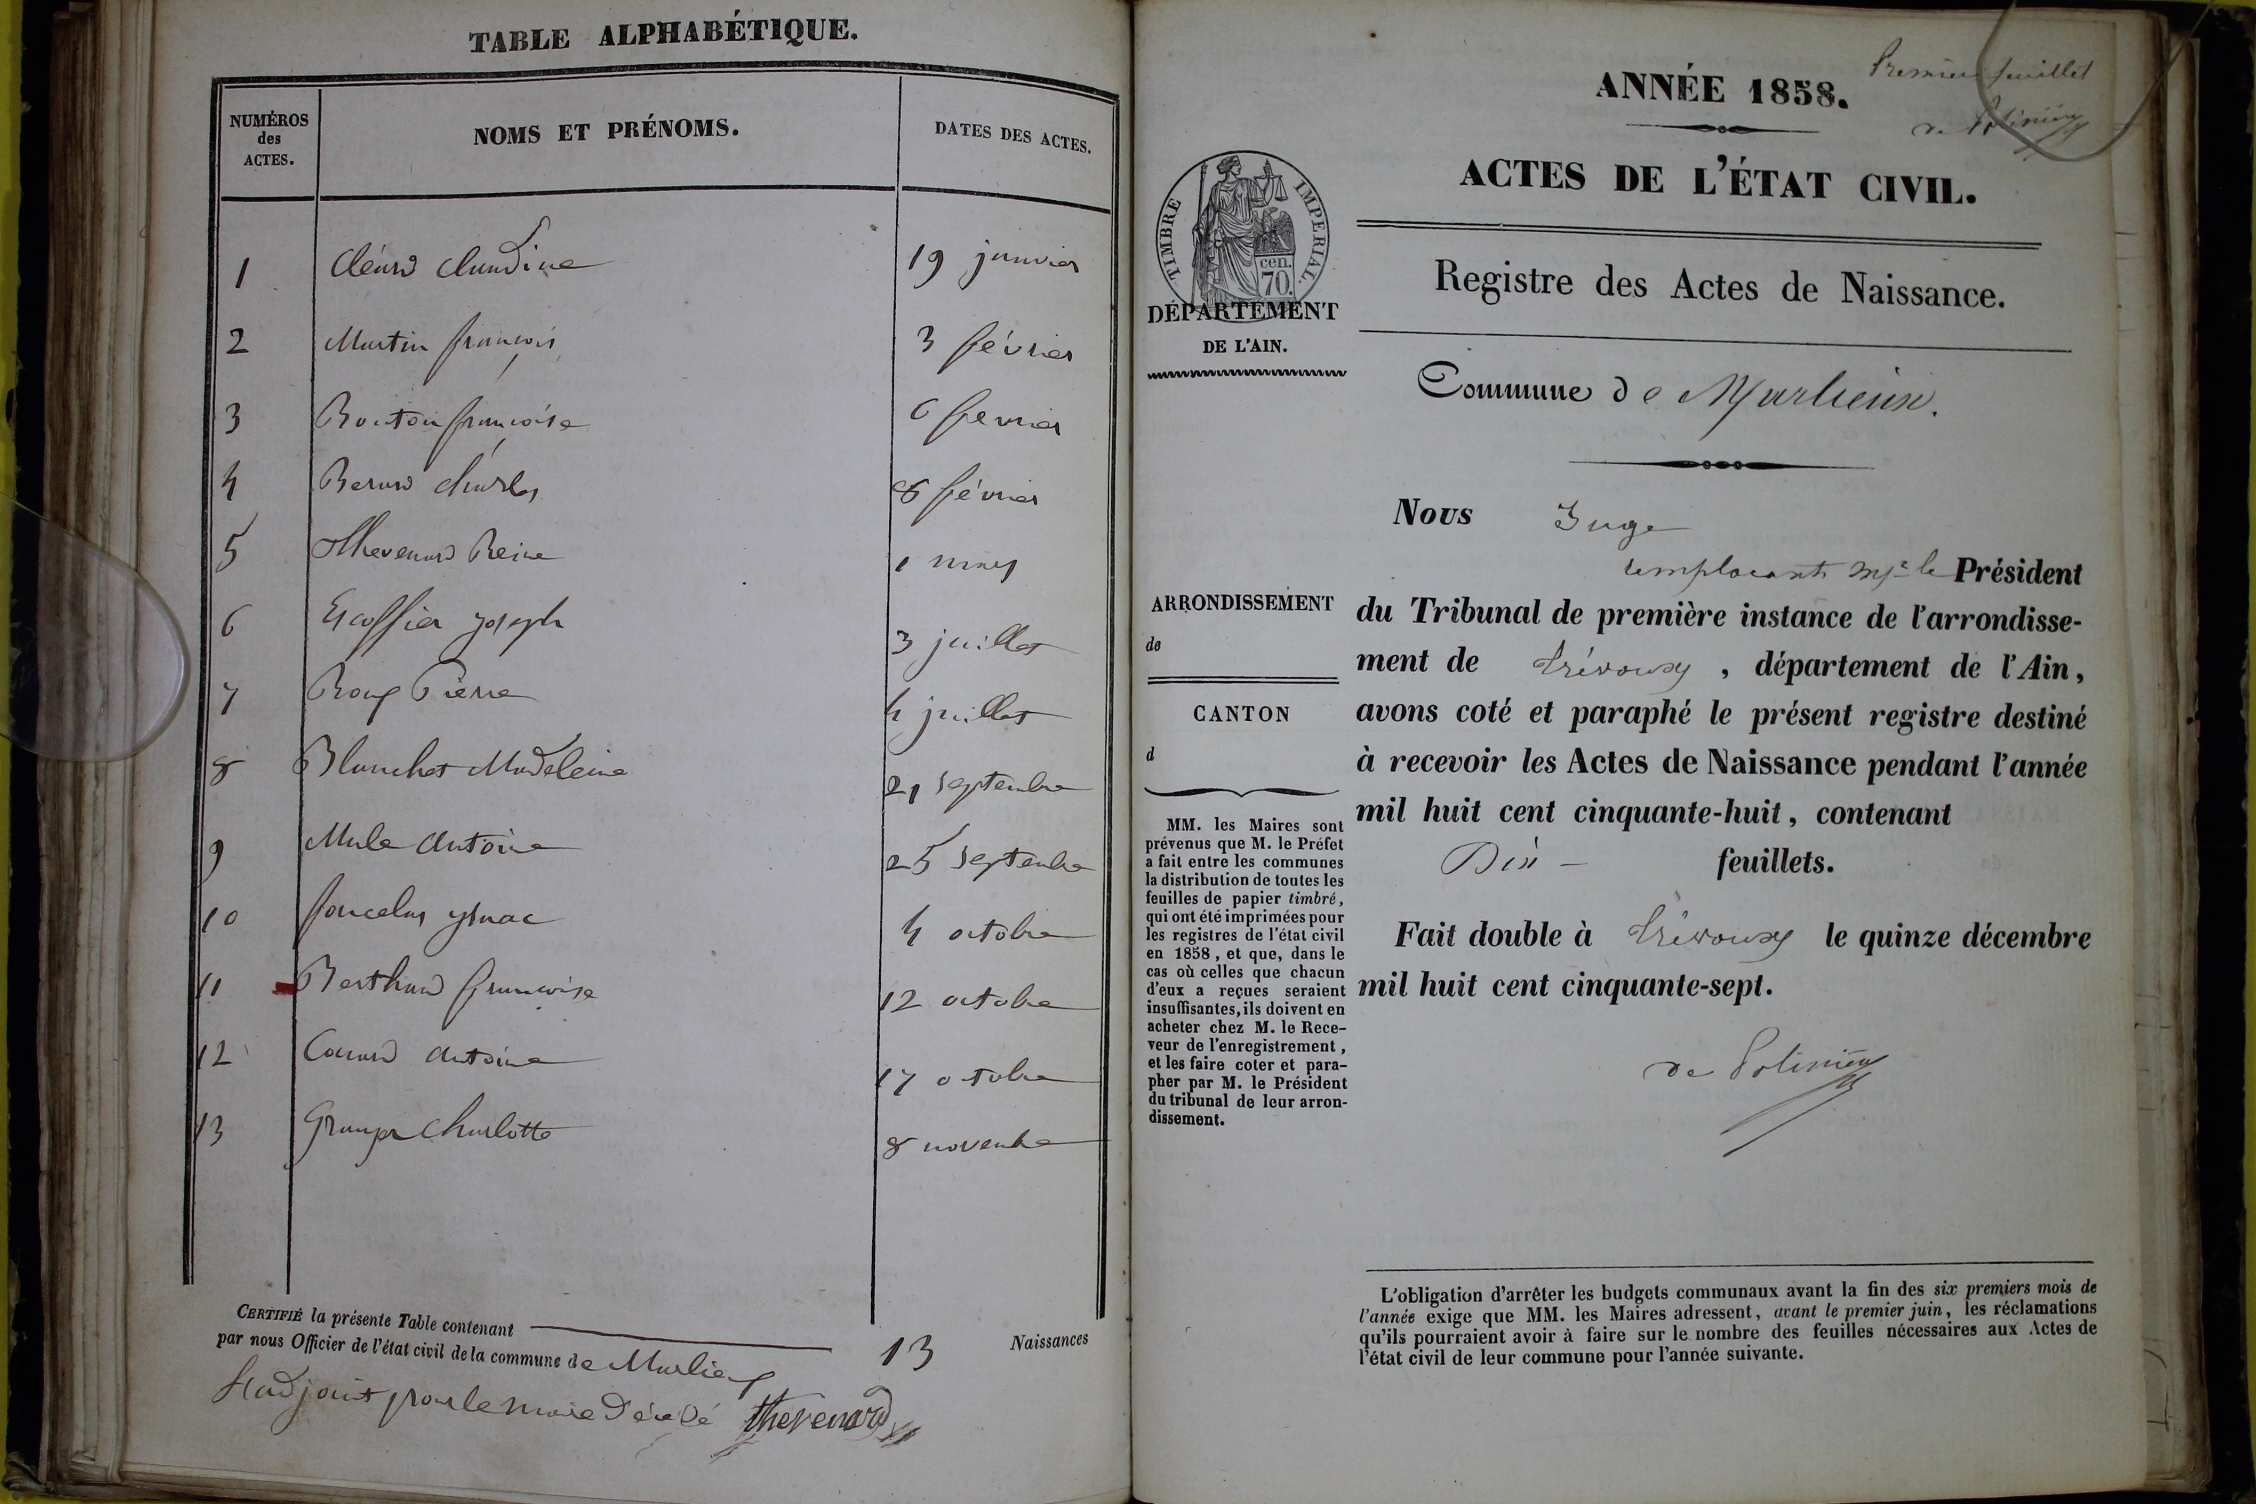 TABLE ALPHABÉTIQUE.
NUMÉROS des ACTES.
NOMS ET PRÉNOMS.
DATES DES ACTES.
1 Cléard Claudine 19 janvier
2 Martin françois 3 février
3 Bouton françoise 6 fevrier
4 Berard Charles 8 février
5 Thevenard Reine 1 mars
6 Escoffier joseph 3 juillet
7 Roux Pierre 4 juillet
8 Blanchet Madeleine 21 septembre
9 Mule Antoine 25 septembre
10 4 octobre
11 Berthaud françoise 12 octobre
12 Antoine 17 octobre
13 Granger Charlotte 8 novembre
CERTIFIÉ la présente Table contenant 13 Naissances
par nous Officier de l'état civil de la commune de Marlieux
L'adjoint pour le maire décédé Thevenard
Premier feuillet
de Polinière
ANNÉE 1858.
ACTES DE L'ÉTAT CIVIL.
Registre des Actes de Naissance.
TIMBRE IMPERIAL.
cen.
70.
DÉPARTEMENT
DE L'AIN.
Commune de Marlieux.
ARRONDISSEMENT
de
CANTON
d
MM. les Maires sont
prévenus que M. le Préfet
a fait entre les communes
la distribution de toutes les
feuilles de papier timbré,
qui ont été imprimées pour
les registres de l'état civil
en 1858, et que, dans le
cas où celles que chacun
d'eux a reçues seraient
insuffisantes, ils doivent en
acheter chez M. le Rece-
veur de l'enregistrement,
et les faire coter et para-
pher par M. le Président
du tribunal de leur arron-
dissement.
Nous Juge
remplacant Mr le Président
du Tribunal de première instance de l'arrondisse-
ment de Trévoux, département de l'Ain,
avons coté et paraphé le présent registre destiné
à recevoir les Actes de Naissance pendant l'année
mil huit cent cinquante-huit, contenant
Dix - feuillets.
Fait double à Trévoux le quinze décembre
mil huit cent cinquante-sept.
de Polinière
L'obligation d'arrêter les budgets communaux avant la fin des six premiers mois de
l'année exige que MM. les Maires adressent, avant le premier juin, les réclamations
qu'ils pourraient avoir à faire sur le nombre des feuilles nécessaires aux Actes de
l'état civil de leur commune pour l'année suivante.